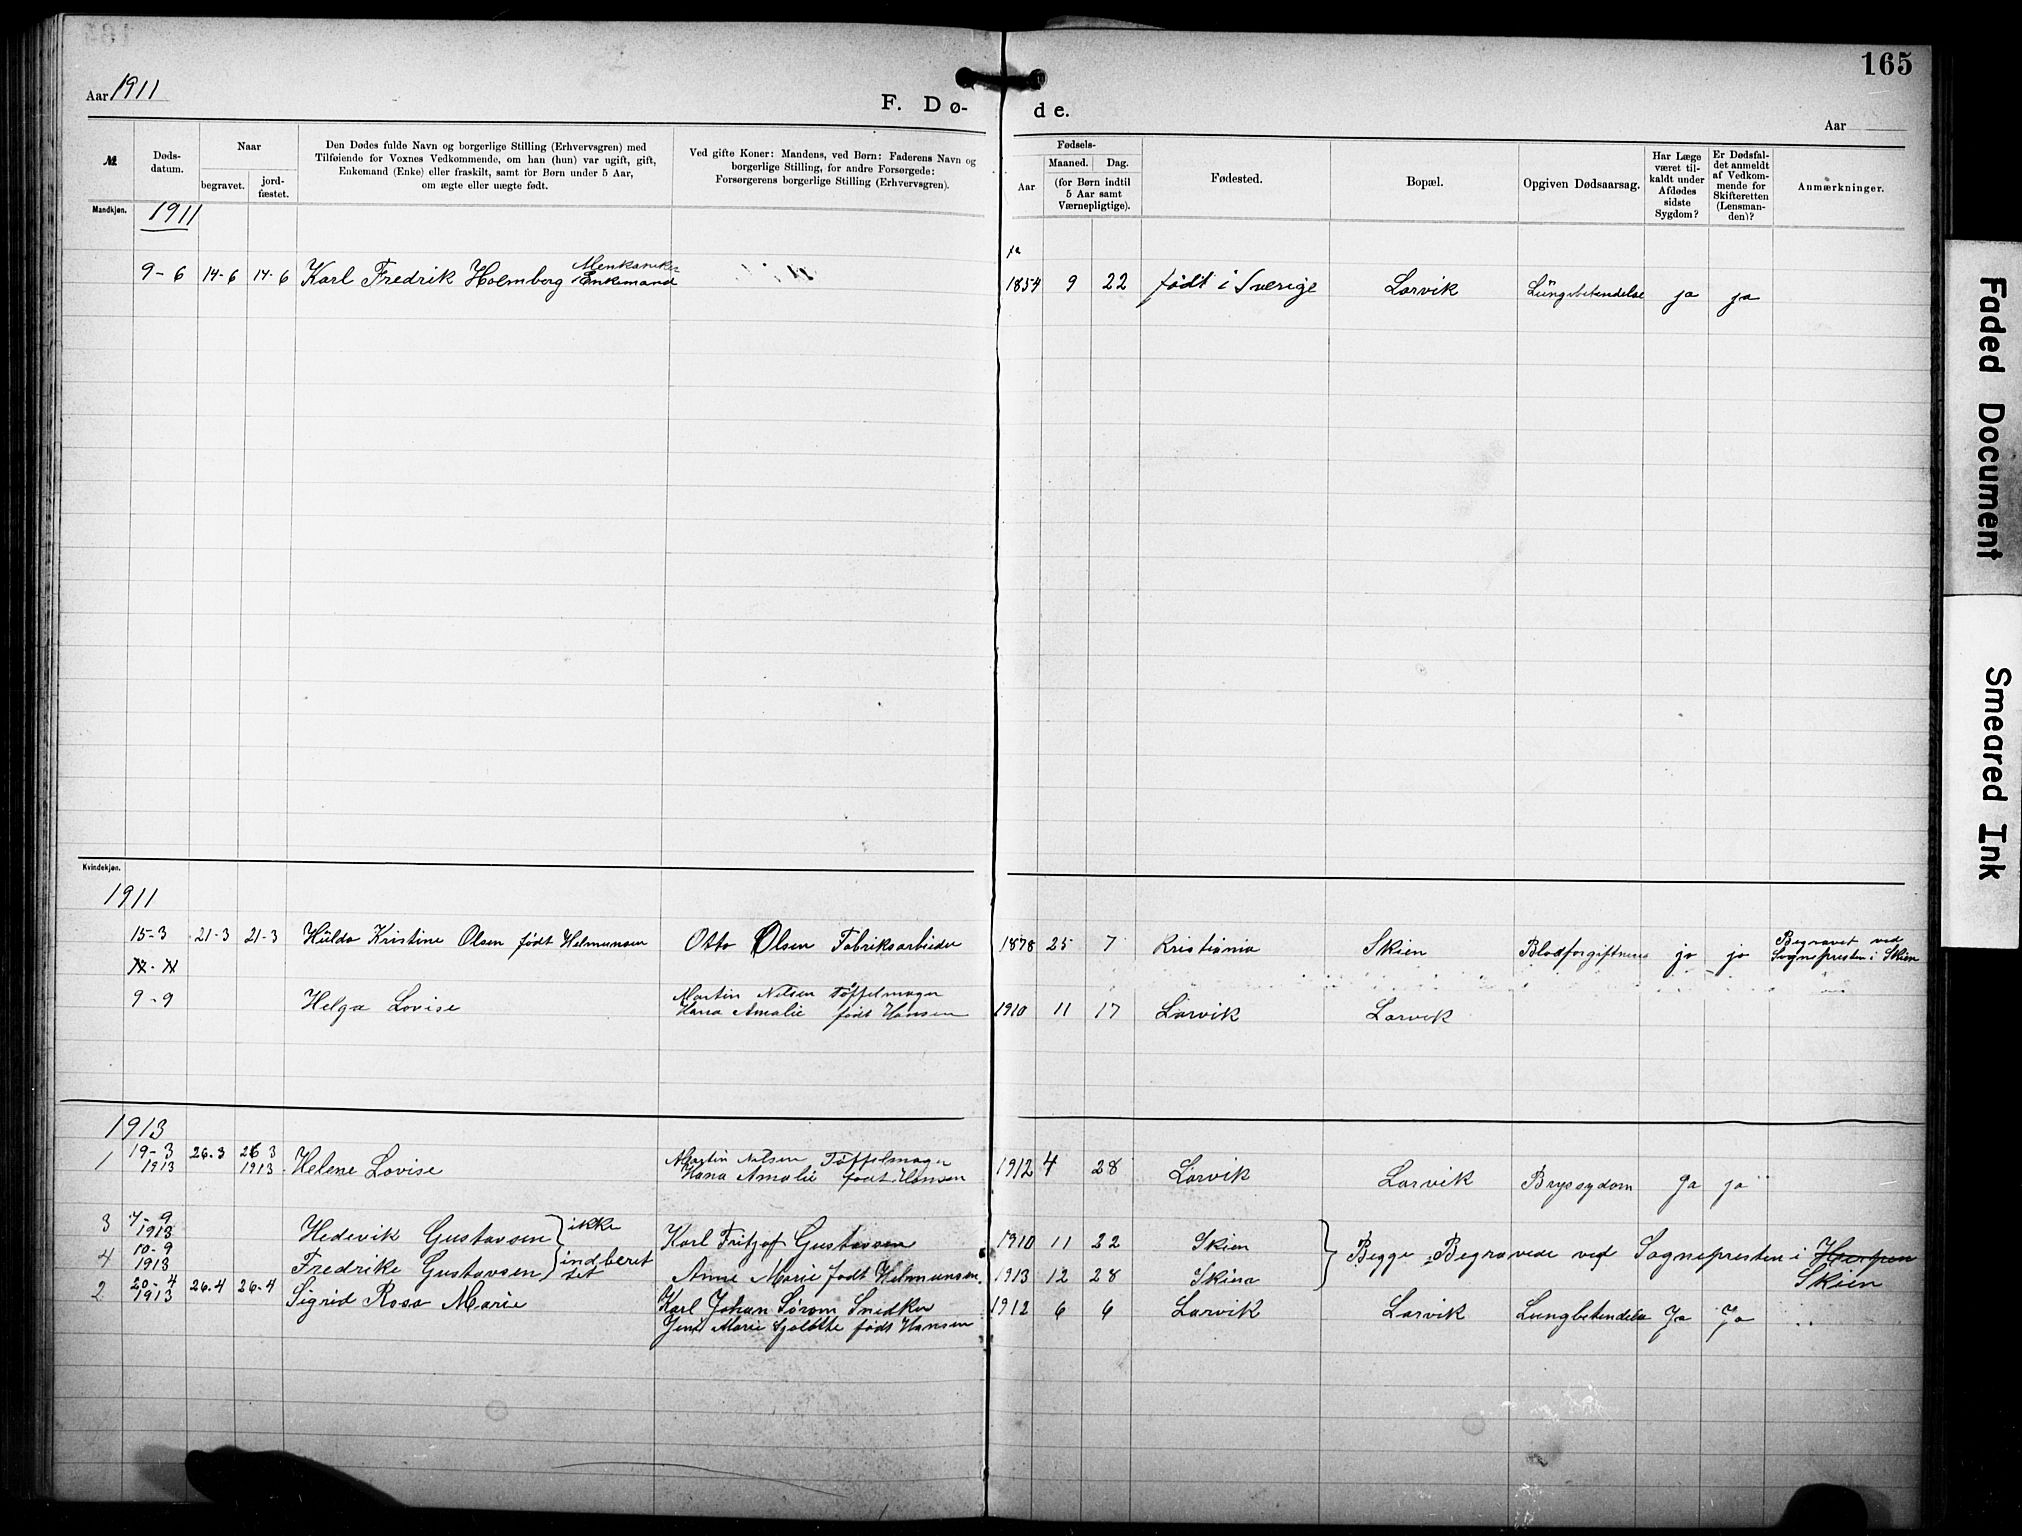 165
Aar 1911
F. Dø- de.
Aar
№
Døds-
datum.
Naar
begravet.
jord-
fæstet.
Den Dødes fulde Navn og borgerlige Stilling (Erhvervsgren) med
Tilføiende for Voxnes Vedkommende, om han (hun) var ugift, gift,
Enkemand (Enke) eller fraskilt, samt for Børn under 5 Aar,
om ægte eller uægte født.
Ved gifte Koner: Mandens, ved Børn: Faderens Navn og
borgerlige Stilling, for andre Forsørgede:
Forsørgerens borgerlige Stilling (Erhvervsgren).
Fødsels-
Aar
Maaned.
Dag.
(for Børn indtil
5 Aar samt
Værnepligtige).
Fødested.
Bopæl.
Opgiven Dødsaarsag.
Har Læge
været til-
kaldt under
Afdødes
sidste
Sygdom?
Er Dødsfal-
det anmeldt
af Vedkom-
mende for
Skifteretten
(Lensman-
den)?
Anmærkninger.
Mandkjøn.
1911
9-6 14-6 14-6 Karl Fredrik Holmberg Menkaniker Enkemand 1854 9 22 født i Sverige Larvik Lungebetendelse ja ja
Kvindekjøn.
1911
15-3 21-3 21-3 Hulda Kristine Olsen født Helmunsen Otto Olsen Fabriksarbeider 1878 25 7 Kristiania Skien Blodforgiftning ja ja Begravet ved
Sognepresten i Skien
9-9 Helga Lovise Martin Nilsen Tøffelmager
Hana Amalie født Hansen 1910 11 17 Larvik Larvik
1913
1 19-3 1913 26.3 26 3 1913 Helene Lovise Martin Nilsen Tøffelmager
Hana Amalie født Hansen 1912 4 28 Larvik Larvik Brystsydom Ja ja
3 7-9 1913 Hedevik Gustavsen } ikke Karl Fritjof Gustavsen 1910 11 22 Skien } Begge Begravede ved Sognepresten i Herpen
4 10-9 1913 Fredrike Gustavsen } indberettet Anne Marie født Helmunsen 1913 12 28 Skien Skien
2 20-4 1913 26.4 26-4 Sigrid Rosa Marie Karl Johan Sørom Snidker
Jenny Marie født Hansen 1912 6 6 Larvik Larvik Lungbetendelse Ja Ja
Faded Document
Smeared Ink